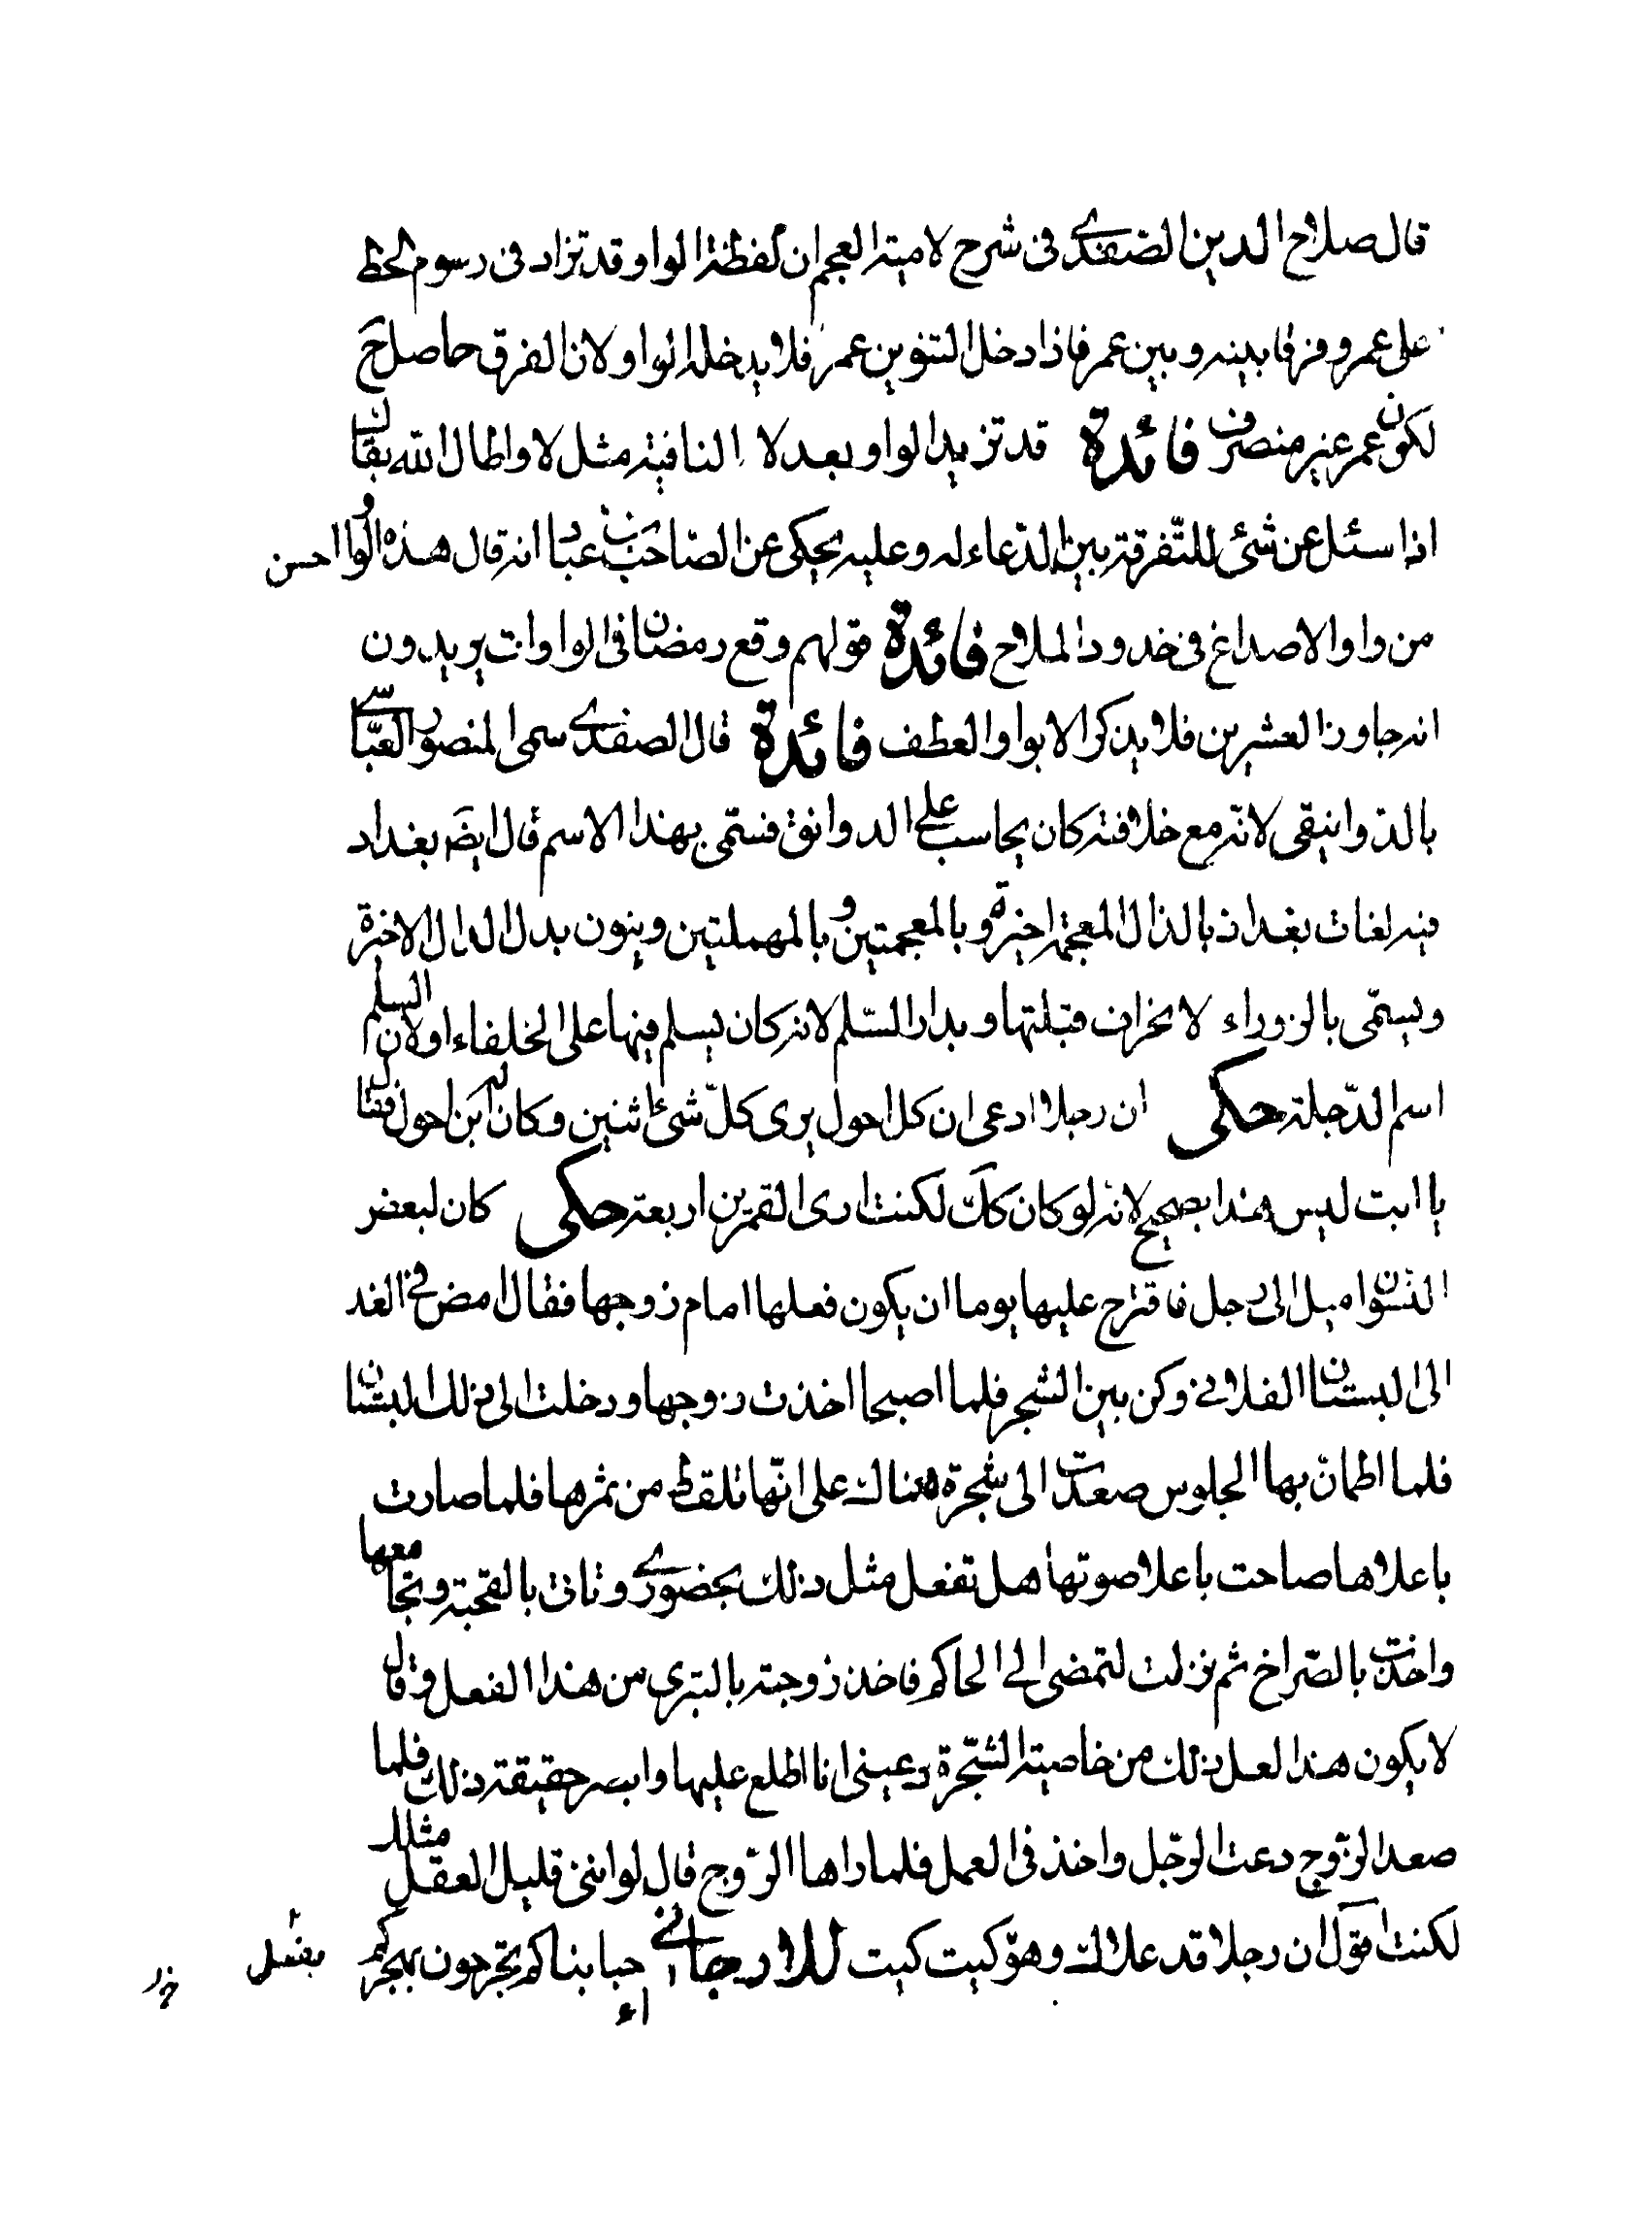 قال صلاح الدين الصّفدي فى شرح لامية العجم ان لفظة الواو قد تزاد فى رسوم الخط
على عمرو فرقا بينه وبين عمر فاذا دخل التنوين عمر فلا يدخله الواو لان الفرق حاصل ح
لكون عمر غير منصرف فائدة قد تزيد الواو بعد لا النافية مثل لا واطال الله بقان
اذا سئل عن شئ للتّفرقة بين الدّعاء له وعليه يحكى عن الصّاحب بن عباد انه قال هذه الواو احسن
من واو الاصداغ فى خدود الملاح فائدة قولهم وقع رمضان فى الواوات يريدون
انه جاوز العشرين فلا يذكر الا بواو العطف فائدة قال الصفدي سمى المنصور العبّاسي
بالدّوانيقى لانّه مع خلافته كان يحاسب على الدوانق فسمّى بهذا الاسم قال ايضَ بغداد
فيه لغات بغداذ بالذال المعجمة اخيرة و بالمعجمتين و بالمهملتين وبنون بدل الدال الاخيرة
ويسمّى بالزوراء لانحراف قبلتها وبدار السّلم لانه كان يسلم فيها على الخلفاء او لان السلم
اسم الدّجلة حكى ان رجلا ادعى ان كل احول يرى كلّ شئ اثنين وكان له ابن احول فقال
يا ابت ليس هذا بصحيح لانه لو كان كك لكنت ارى القمرين اربعة حكى كان لبعض
النسوان ميل الى رجل فاقترح عليها يوما ان يكون فعلها امام زوجها فقال امض في الغد
الى البستان الفلاني وكن بين الشجر فلما اصبحا اخذت زوجها ودخلت الى ذلك البستان
فلما اطمانّ بها الجلوس صعدت الى شجرة هناك على انّها تلقط من ثمرها فلما صارت
باعلاها صاحت باعلا صوتها هل تفعل مثل ذلك بحضوري وتاتى بالقحبة وتجامعها
واخذت بالصّراخ ثم نزلت لتمضى الى الحاكم فاخذ زوجته بالتبري من هذا الفعل وقال
لا يكون هذا لعل ذلك من خاصية الشّجرة دعينى انا اطلع عليها وابصر حقيقة ذلك فلما
صعد الزّوج دعت الرّجل واخذ فى العمل فلما راها الزّوج قال لو اننى قليل العقل مثلك
لكنت اقول ان رجلا قد علاك وهو كيت كيت للارجاني احبابنا كم تجرحون بهجركم